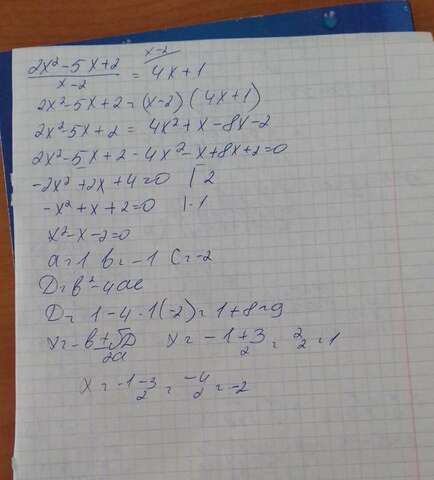 x-2
2x²-5x+2 / x-2 = 4x+1
2x²-5x+2=(x-2)(4x+1)
2x²-5x+2 = 4x²+x-8x-2
2x²-5x+2-4x²-x+8x+2=0
-2x²+2x+4=0 | 2
-x²+x+2=0 |·-1
x²-x-2=0
a=1 b=-1 c=-2
D=b²-4ac
D= 1-4·1(-2)=1+8=9
x=-b±√D/2a x=-1+3/2=2/2=1
x=-1-3/2=-4/2=-2